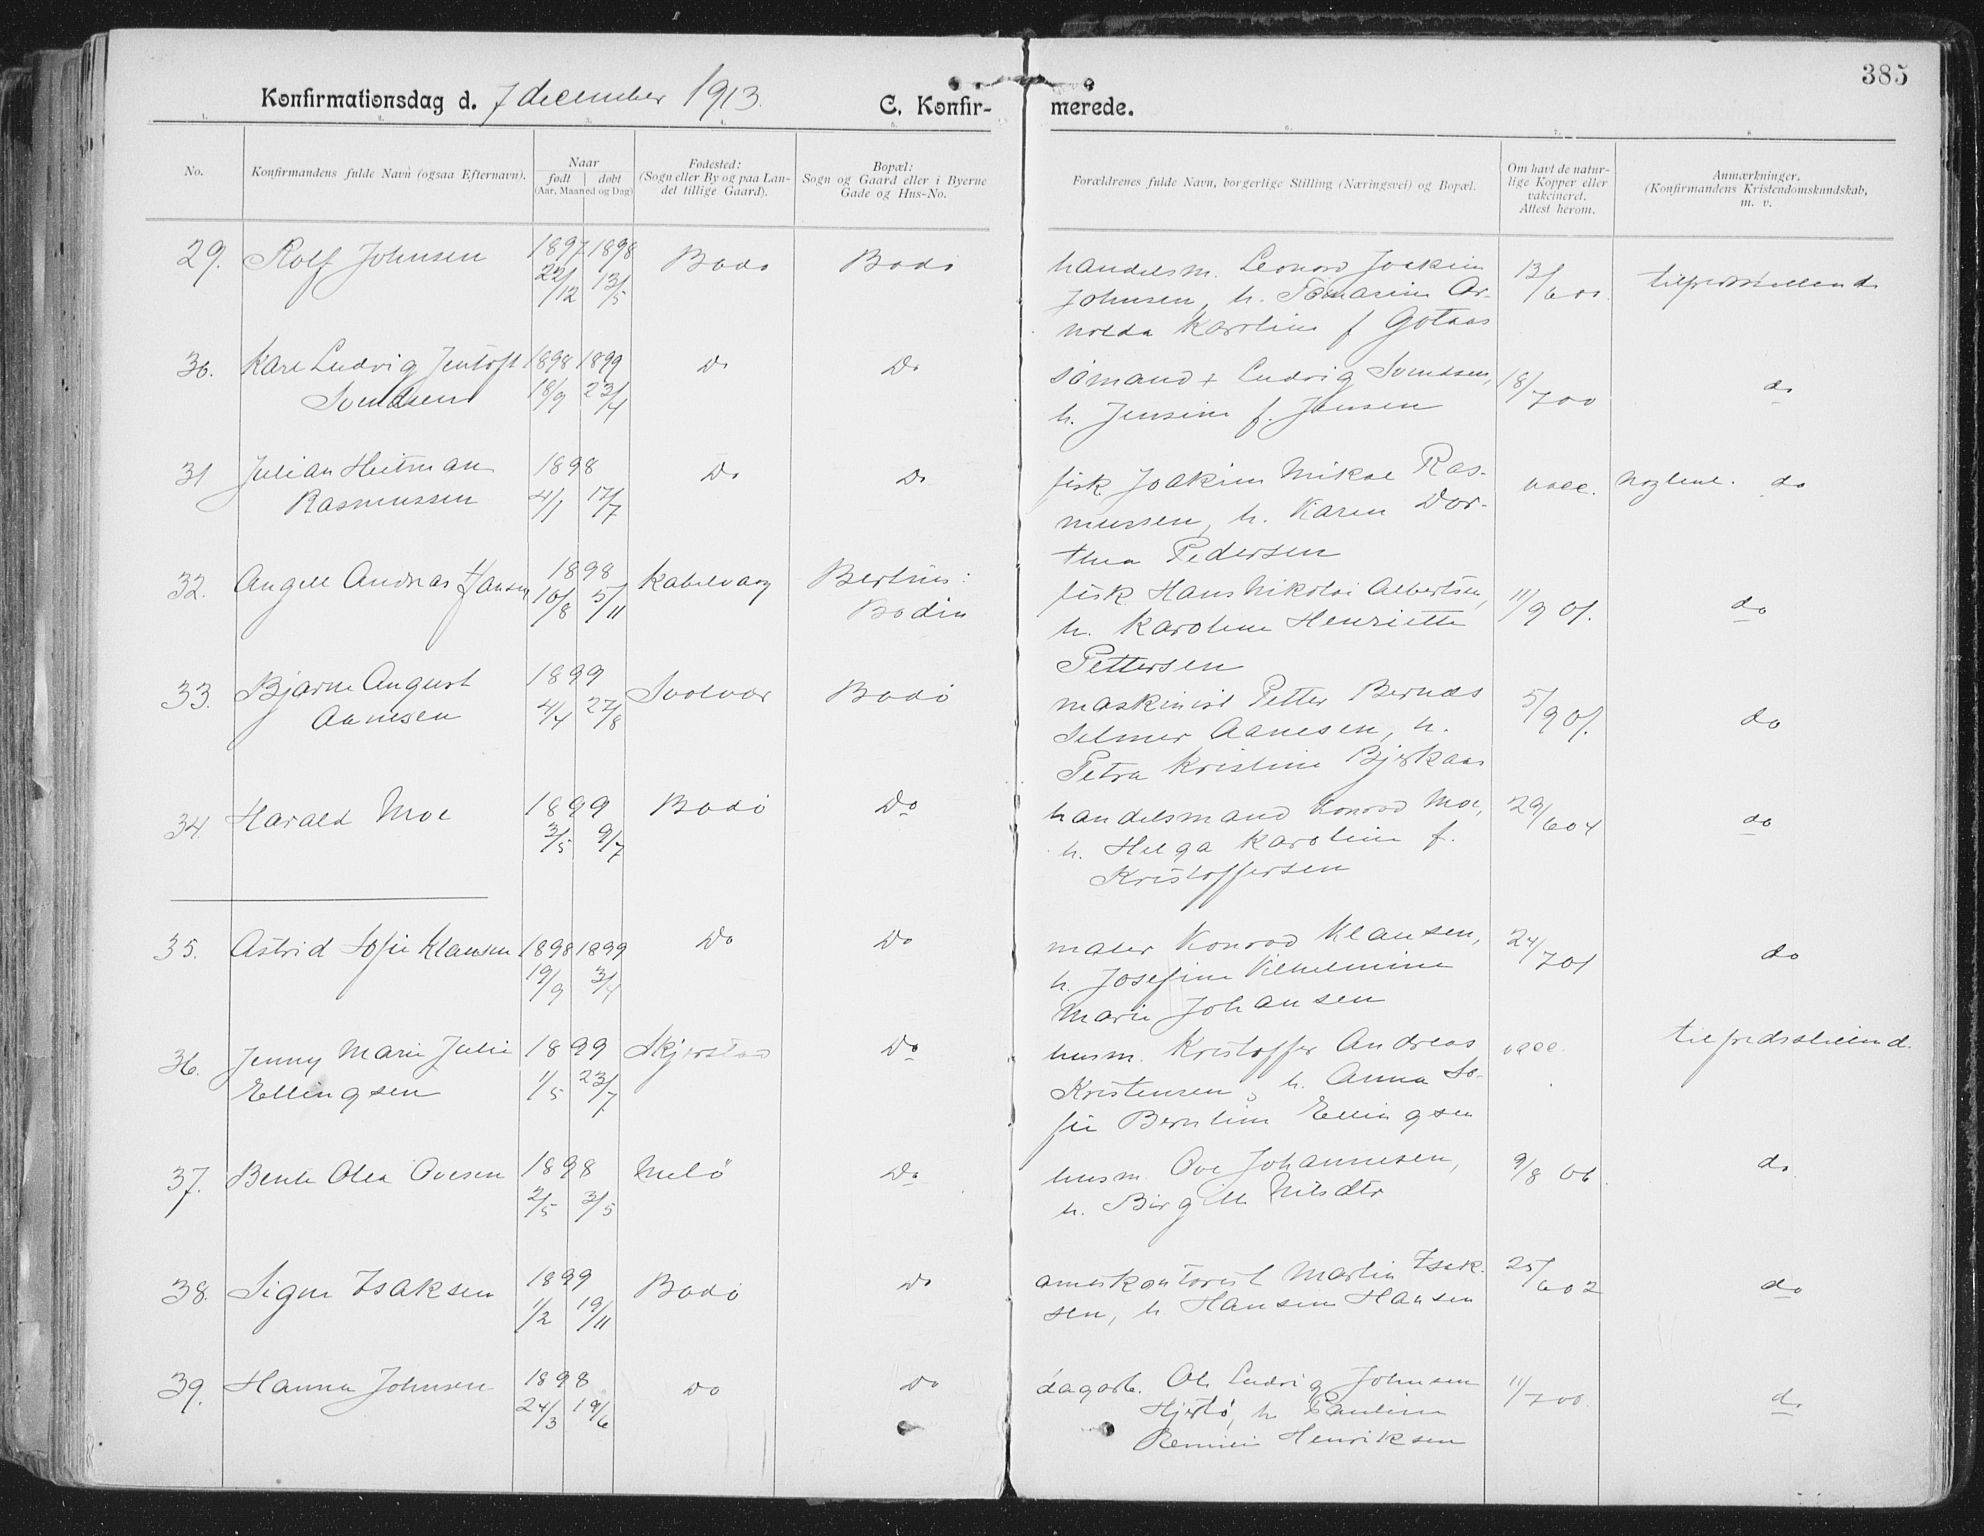 385
Konfirmationsdag d. 7 december 1913. C. Konfir- merede.
1. 2. 3. 4. 5. 6. 7. 8.
No.
Konfirmandens fulde Navn (ogsaa Efternavn).
Naar
født | døbt
(Aar, Maaned og Dag)
Fødested:
(Sogn eller By og paa Lan-
det tillige Gaard).
Bopæl:
Sogn og Gaard eller i Byerne
Gade og Hus-No.
Forældrenes fulde Navn, borgerlige Stilling (Næringsvei) og Bopæl.
Om havt de natur-
lige Kopper eller
vakcineret.
Attest herom.
Anmærkninger.
(Konfirmandens Kristendomskundskab,
m. v.
29. Rolf Johnsen 1897 1898 Bodø Bodø
22/12 13/5
handelsm. Leonard Joakim
Johnsen, h.
Karoline f. Gotaas
13/6 00. tilfredsstillende
30. Karl Ludvig Jentoft 1898 1899 Do Do
Svendsen 18/9 23/4
sømand + Ludvig Svendsen,
h. Jensine f. Jensen
18/7 00 do
31 Julian Heitman 1898 Do Do
Rasmussen 4/1 17/7
fisk. Joakim Mikal Ras-
mussen, h. Karen Dor-
thea Pedersen
vacc. do
32. Angell Andreas Hansen 1898 Kabelvaag Bertnes:
10/8 5/11 Bodin
fisk. Hans Nikolai Albertsen,
h. Karoline Henriette
Pettersen
11/9 01. do
33. Bjarne August 1899 Svolvær Bodø
Aanesen 4/4 27/8
maskinist Petter Bernas
Selmer Aanesen, h.
Petra Kristine Bjerkaas
5/9 01. do
34. Harald Moe 1899 Bodø Do
3/5 9/7
handelsmand Konrad Moe,
h. Helga Karoline f.
Kristoffersen
29/6 04 do
35. Astrid Sofie Klausen 1898 1899 Do Do
19/9 3/4
maler Konrad Klausen,
h. Josefine Vilhelmine
Marie Johansen
24/7 01 do
36. Jenny Marie Julie 1899 Skjerstad Do
Ellingsen 1/5 23/7
husm. Kristoffer Andreas
Kristensen, h. Anna So-
fie Berntine Ellingsen
vacc. tilfredsstillend.
37. Bente Olea Ovesen 1898 Melø Do
2/5 3/5
husm. Ove Johannesen,
h. Birgitte Nilsdtr
9/8 06. do
38. Signe Isaksen 1899 Bodø Do
1/2 19/11
amtskontorist Martin Isak-
sen, h. Hansine Hansen
25/6 02 do
39. Hanna Johnsen 1898 Do Do
24/3 19/6
dagarb. Ole Ludvig Johnsen
Hjertø, h. Pauline
Henriksen
11/7 00. do